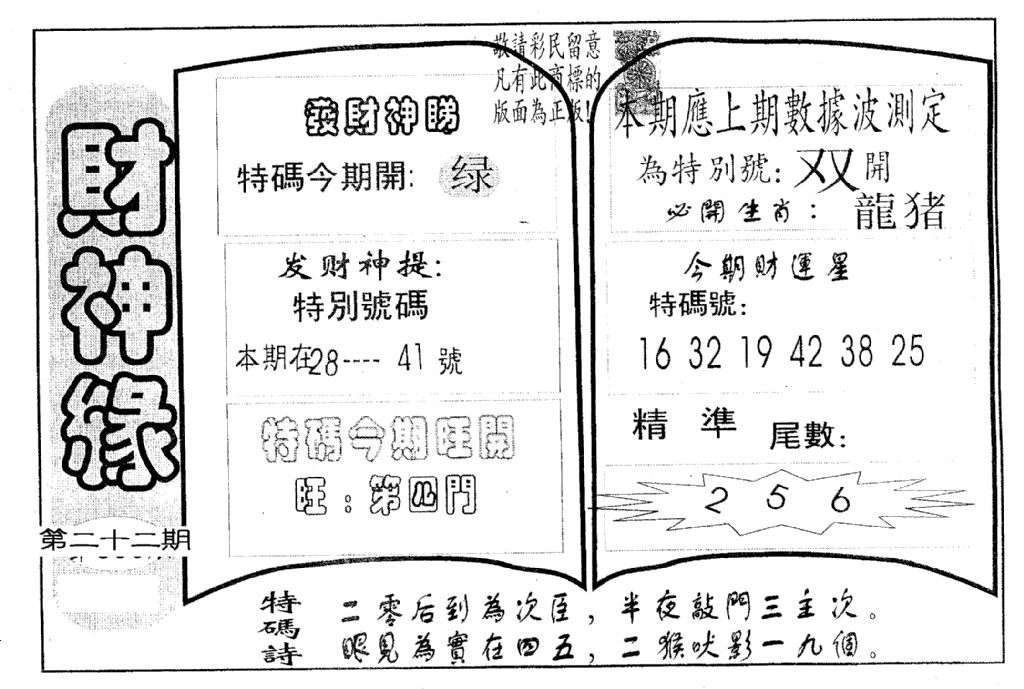 敬請彩民留意
凡有此商標的
版面為正版!
財神緣
第二十二期
發財神賜
特碼今期開: 绿
发财神提:
特別號碼
本期在28---- 41 號
特碼今期旺開
旺:第四門
本期應上期數據波測定
為特別號:双 開
必開生肖: 龍猪
今期財運星
特碼號:
16 32 19 42 38 25
精 準 尾數:
2 5 6
特碼詩
二零后到為次臣,半夜敲門三主次。
眼見為實在四五,二猴吠影一九個。